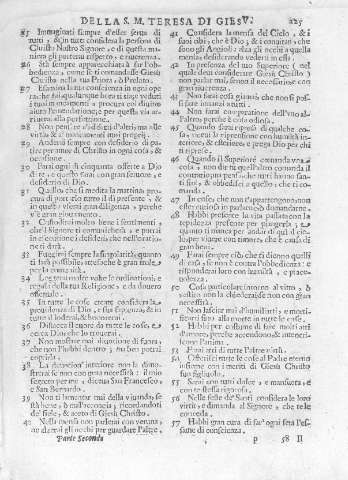 DELLA S. M. TERESA DI GIESV. 225
25 Immaginati sempre d'esser serua di
tutti, & in tutti considera la persona di
Christo Nostro Signore, e di questa maniera
gli porterai rispetto, e riuerenza.
26 Stà sempre apparecchiata all'obbedienza,
come se ti comandasse Giesù
Christo nella tua Priora, ò Prelato.
27 Esamina la tua conscienza in ogni operatione
& in qualunque hora
i tuoi mancamenti procura col diuino
aiuto l'emendatione: e per questa via arriuerai
alla perfettione.
28 Non pensare à' difetti d'altri, ma alle
virtù, & a' mancamenti tuoi proprij.
29 Anderai sempre con desiderio di patire
per amor di Christo in ogni cosa, &
occasione.
30 Farai ogni dì cinquanta offerte à Dio
di te, e questo farai con gran feruore, e
desiderio di Dio.
31 Quello, che si medita la mattina procura
di portarlo tutto il dì presente, &
in questo vserai gran diligenza, perche
v'è gran giouamento.
32 Custodirai molto bene i sentimenti,
che 'l Signore ti comunicherà, e porrai
in essecutione i desiderij, che nell'oratione
ti darà.
33 Fuggirai sempre la singolarità, quanto
ti sarà possibile, attesoche è gran male,
per la comunità.
34 Leggerai molte volte le ordinationi, e
regola della tua Religione, e da douero
osseruale.
35 In tutte le cose create considera la
prouidenza di Dio, e sua sapienza, & in
tutte il loderai,
36 Distacca il cuore da tutte le cose, e
cerca Dio, che lo trouerai.
37 Non mostrare mai diuotione di fuora,
che non l'habbi dentro; ma ben potrai
coprirla.
38 La diuotion' interiore non la dimostrarai
se non con gran necessità. il mio
secreto per me, diceua San Francesco,
e San Bernardo.
39 Non ti lamentar mai della viuanda, se
stà bene, ò mal'acconcia, ricordandoti
del fiele, & aceto di Giesù Christo.
40 Nella mensa non parlerai con veruno,
nè alzarai gli occhi per guardare l'altre.
Parte Seconda
41 Considera la mensa del Cielo, & i
suoi cibi, che è Dio; & i conuitati, che
sono gli Angioli: alza gli occhi a quella
mensa desiderando vederti in essa.
42 In presenza del tuo Superiore (nel
quale deui considerare Giesù Christo)
non parlar mai, senon il necessario e con
gran riuerenza.
43 Non farai cosa giamai, che non si possi
fare innanzi a tutti.
44 Non farai comparatione dell'vno all'altro
perche è cosa odiosa.
45 Quando sarai ripresa di qualche cosa,
riceui la riprensione con humiltà interiore,
& esteriore: e prega Dio per chi
ti riprese.
46 Quando il Superiore comanda vna cosa,
non dire ch'vn'altro comanda il
contrario: pensa, che tutti hanno santi
fini, & obbedisci a questo, che ti comanda.
47 In cose, che non t'appartengono, non
esser curiosa in parlarne, ò domandarne.
48 Habbi presente la vita passata con la
tepidezza presente per piangerla, e
quanto ti manca per andar di qui al cielo:
per viuere con timore, che è causa di
gran beni.
49 Farai sempre ciò, che ti dicono quelli
di casa, se non è contro l'obbedienza: e
rispondi a loro con humiltà, e piaceuolezza.
50 Cosa particolare intorno al vitto, ò
vestito non la chiederai, se non con gran
necessità.
51 Non lasciare mai d'humiliarti, e mortificarti
sino alla morte in tutte le cose.
52 Habbi per costume di fare molti atti
d'amore, perche accendono, & inteneriscono
l'anima.
53 Farai atti di tutte l'altre virtù.
54 Offerirai tutte le cose al Padre eterno
insieme con i meriti di Giesù Christo
suo figliuolo.
55 Sarai con tutti dolce, e mansueta, e
con te stessa rigorosa.
56 Nelle feste de' Santi considera le loro
virtù, e dimanda al Signore, che te le
conceda.
57 Habbi gran cura di far' ogni sera l'essame
di conscienza.
P 58 Il